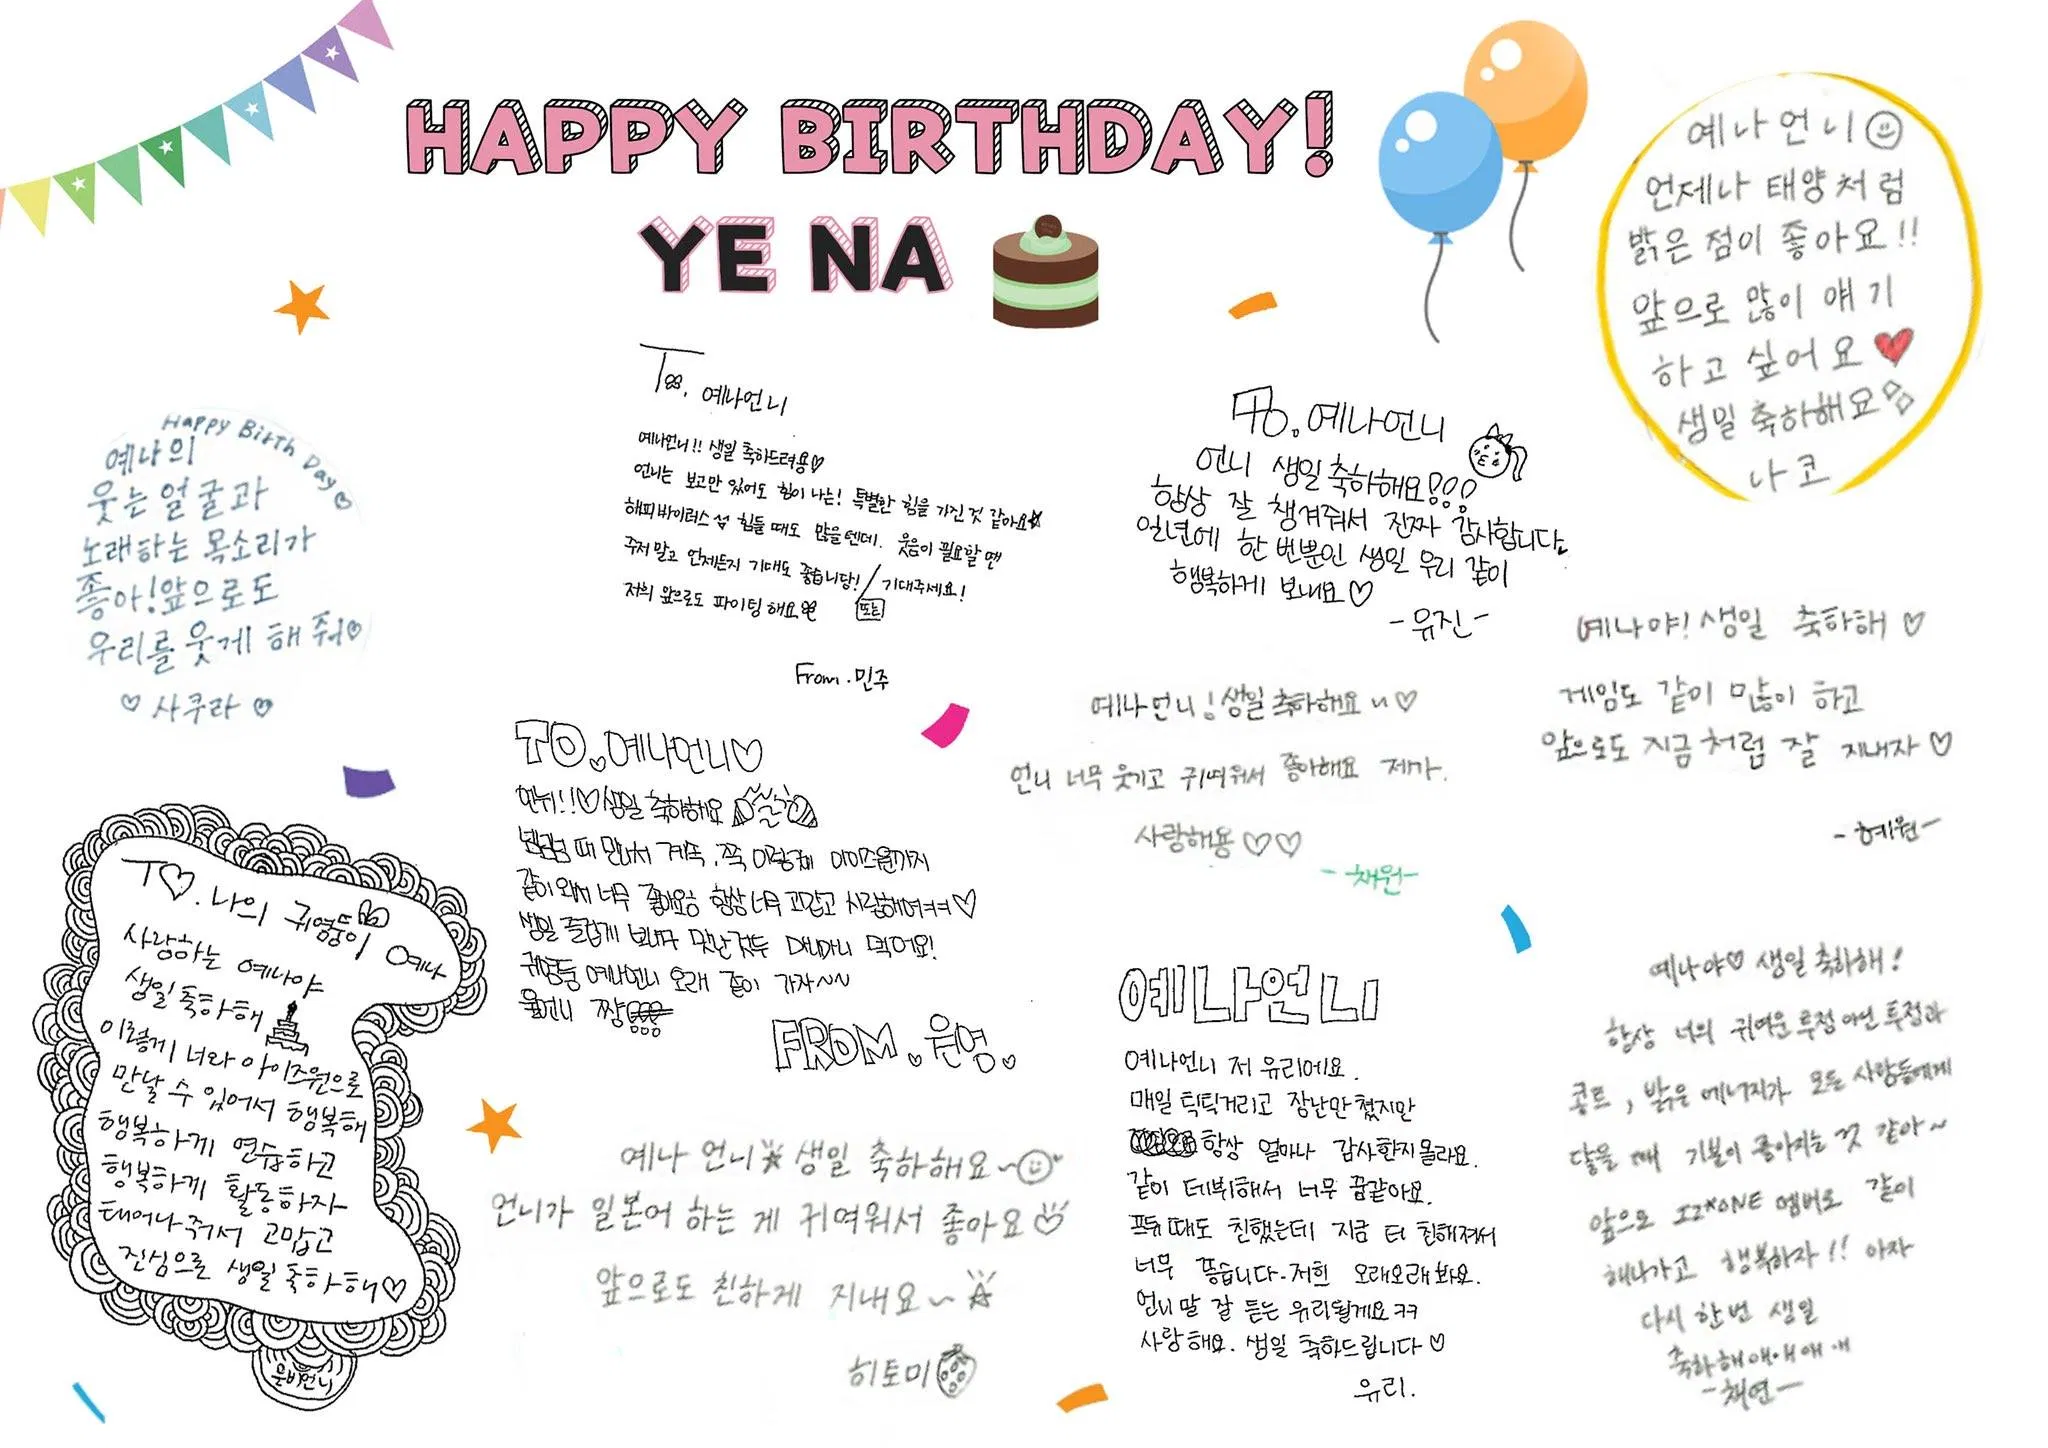 HAPPY BIRTHDAY!
YE NA
예나언니
언제나 태양처럼
밝은 점이 좋아요!!
앞으로 많이 얘기
하고 싶어요♥
생일축하해요
나코
Happy Birth Day♡
예나의
웃는 얼굴과
노래하는 목소리가
좋아!앞으로도
우리를 웃게 해 줘♡
♡ 사쿠라 ♡
To. 예나언니
예나언니!! 생일 축하드려용♡
언니는 보고만 있어도 힘이 나는! 특별한 힘을 가진 것 같아요
해피바이러스 힘들 때도 많을텐데. 웃음이 필요할 땐
주저말고 언제든지 기대도 좋습니당! 기대주세요!
또는
저희 앞으로도 파이팅 해요
From.민주
TO.예나언니
언니 생일축하해요!!!
항상 잘 챙겨줘서 진짜 감사합니다.
일년에 한 번뿐인 생일 우리 같이
행복하게 보내요♡
-유진-
예나야! 생일 축하해 ♡
게임도 같이 많이 하고
앞으로도 지금처럼 잘 지내자 ♡
-혜원-
예나언니! 생일축하해요~♡
언니 너무 웃기고 귀여워서 좋아해요 제가.
사랑해용 ♡♡
-채원-
TO.예나언니♡
언뉘!!♡생일축하해요
때 만나서 계속, 쭉 이렇게 아이즈원까지
같이 와서 너무 좋아요 항상 너무 고맙고 사랑해여ㅋㅋ♡
생일 즐겁게 보내구 맛난것두 마니마니 먹어요!
귀염둥 예나언니 오래 같이 가자~~
언니 짱
FROM.윤영.
T♡.나의 귀염둥이 예나
사랑하는 예나야
생일축하해
이렇게 너와 아이즈원으로
만날 수 있어서 행복해
행복하게 연습하고
행복하게 활동하자
태어나줘서 고맙고
진심으로 생일축하해♡
은비언니
예나 언니 생일 축하해요~
언니가 일본어 하는 게 귀여워서 좋아요
앞으로도 친하게 지내요~
히토미
예나언니
예나언니 저 유리에요.
매일 틱틱거리고 장난만 쳤지만
항상 얼마나 감사한지몰라요.
같이 데뷔해서 너무 꿈같아요.
프듀때도 친했는데 지금 더 친해져서
너무 좋습니다. 저희 오래오래봐요.
언니말 잘 듣는 유리될게요ㅋㅋ
사랑해요. 생일 축하드립니다♡
유리.
예나야♡ 생일축하해!
항상 너의 귀여운 투정 아닌 투정과
콩트, 밝은 에너지가 모든 사람들에게
닿을 때 기분이 좋아지는 것 같아~
앞으로 IZ*ONE 멤버로 같이
해나가고 행복하자!! 아자
다시 한번 생일
축하해애애애애
-채연-